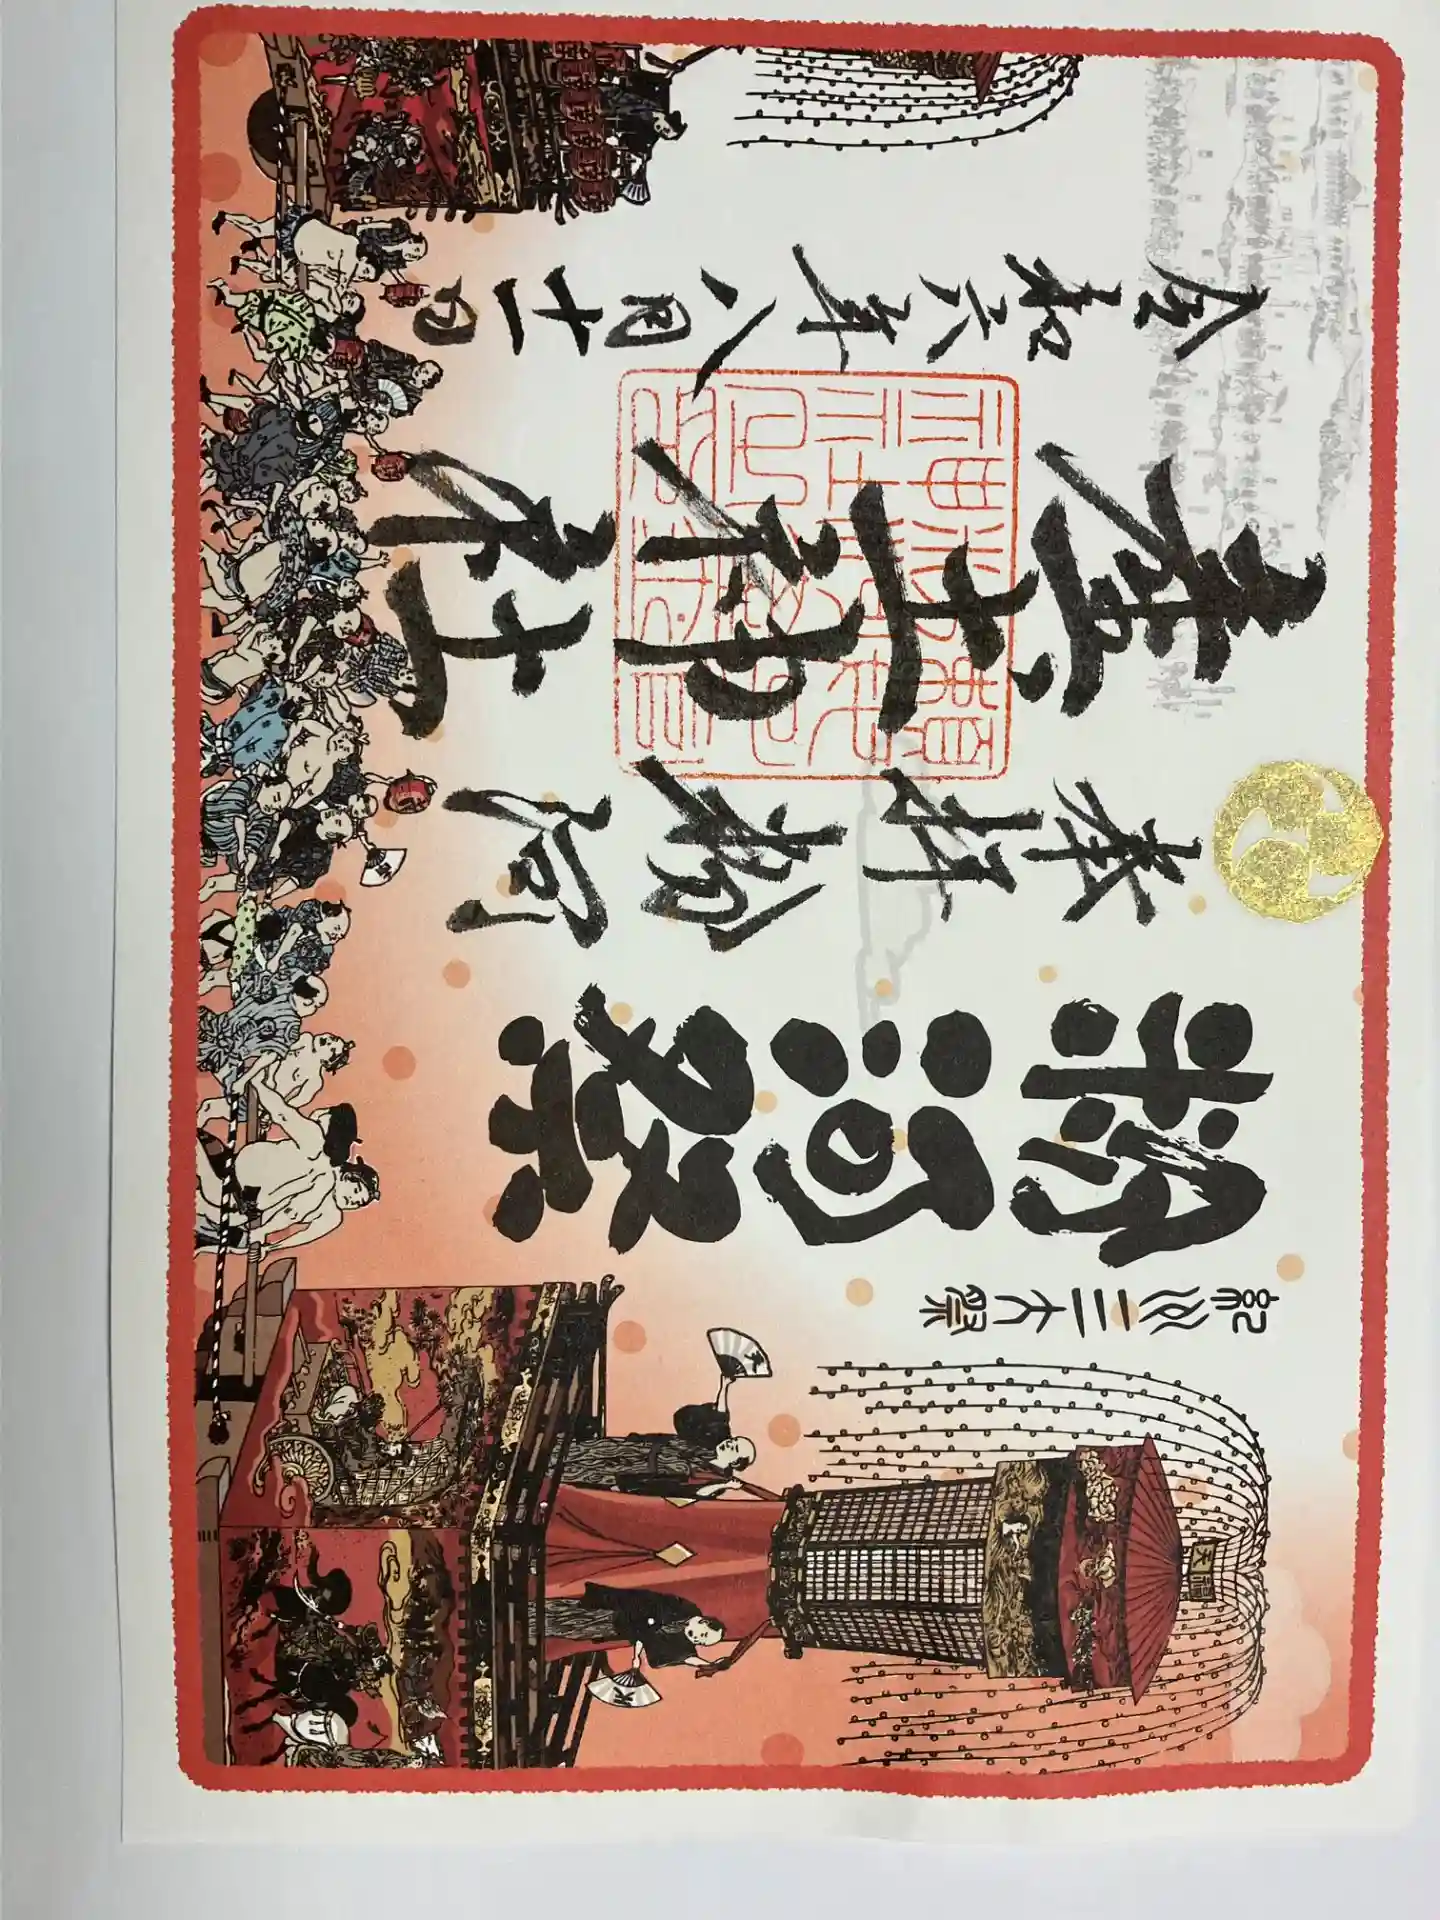 紀州三大祭
粉河祭
奉拝 粉河
産土神社
令和六年八月十一日
天福